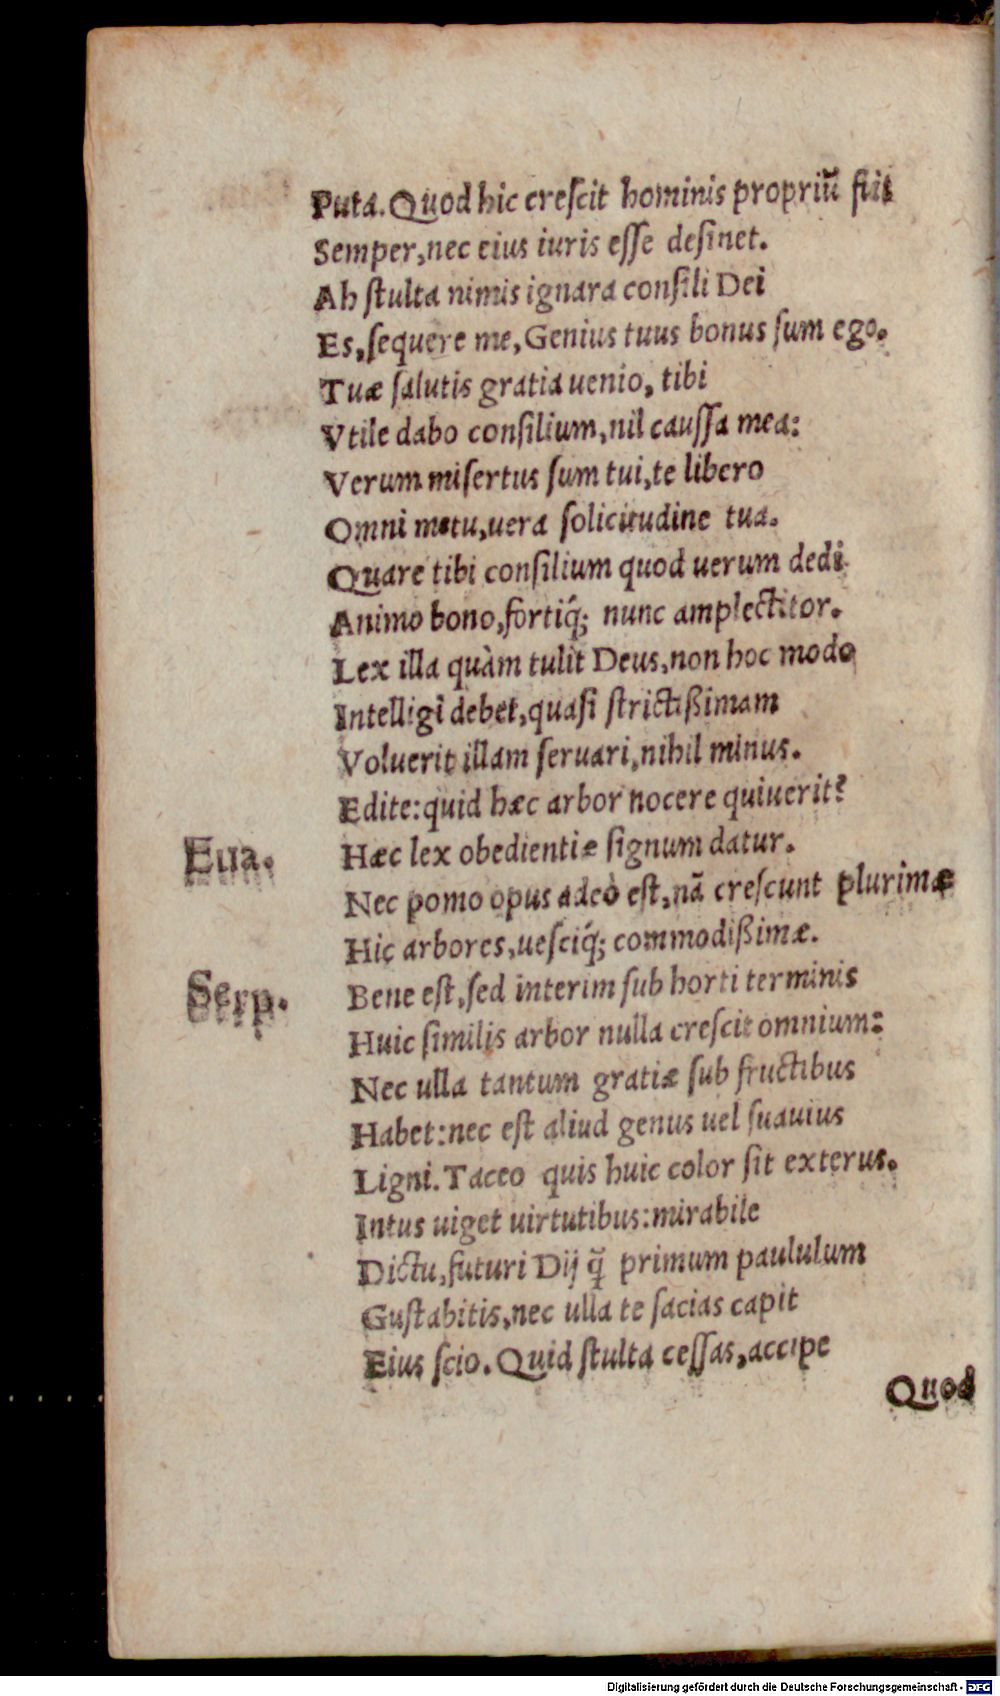 Puta. Quod hic creſcit hominis propriũ fiit
Semper, nec eius iuris eſſe deſinet.
Ah ſtulta nimis ignara conſili Dei
Es, ſequere me, Genius tuus bonus ſum ego.
Tuæ ſalutis gratia uenio, tibi
Vtile dabo conſilium, nil cauſſa mea:
Verum miſertus ſum tui, te libero
Omni metu, uera ſolicitudine tua.
Quare tibi conſilium quod uerum dedi
Animo bono, fortiq́; nunc amplectitor.
Lex illa quàm tulit Deus, non hoc modo
Intelligi debet, quaſi ſtrictißimam
Voluerit illam ſeruari, nihil minus.
Edite: quid hæc arbor nocere quiuerit?
Eua. Hæc lex obedientiæ ſignum datur.
Nec pomo opus adeò eſt, nã creſcunt plurimæ
Hic arbores, ueſciq́; commodißimæ.
Serp. Bene eſt, ſed interim ſub horti terminis
Huic ſimilis arbor nulla creſcit omnium:
Nec ulla tantum gratiæ ſub fructibus
Habet: nec eſt aliud genus uel ſuauius
Ligni. Taceo quis huic color ſit exterus.
Intus uiget uirtutibus: mirabile
Dictu, futuri Dij q̃ primum paululum
Guſtabitis, nec ulla te ſacias capit
Eius ſcio. Quid ſtulta ceſſas, accipe
Quod
Digitalisierung gefördert durch die Deutsche Forschungsgemeinschaft - DFG